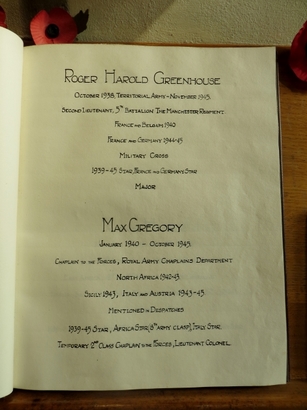 Roger Harold Greenhouse
October 1938, Territorial Army - November 1945.
Second Lieutenant, 5th Battalion The Manchester Regiment.
France and Belgium 1940
France and Germany 1944-45
Military Cross
1939-45 Star, France and Germany Star
Major
Max Gregory
January 1940 - October 1945.
Chaplain to the Forces, Royal Army Chaplains Department
North Africa 1942-43.
Sicily 1943, Italy and Austria 1943-45.
Mentioned in Despatches
1939-45 Star, Africa Star (8th Army clasp), Italy Star.
Temporary 2nd Class Chaplain to the Forces, Lieutenant Colonel.